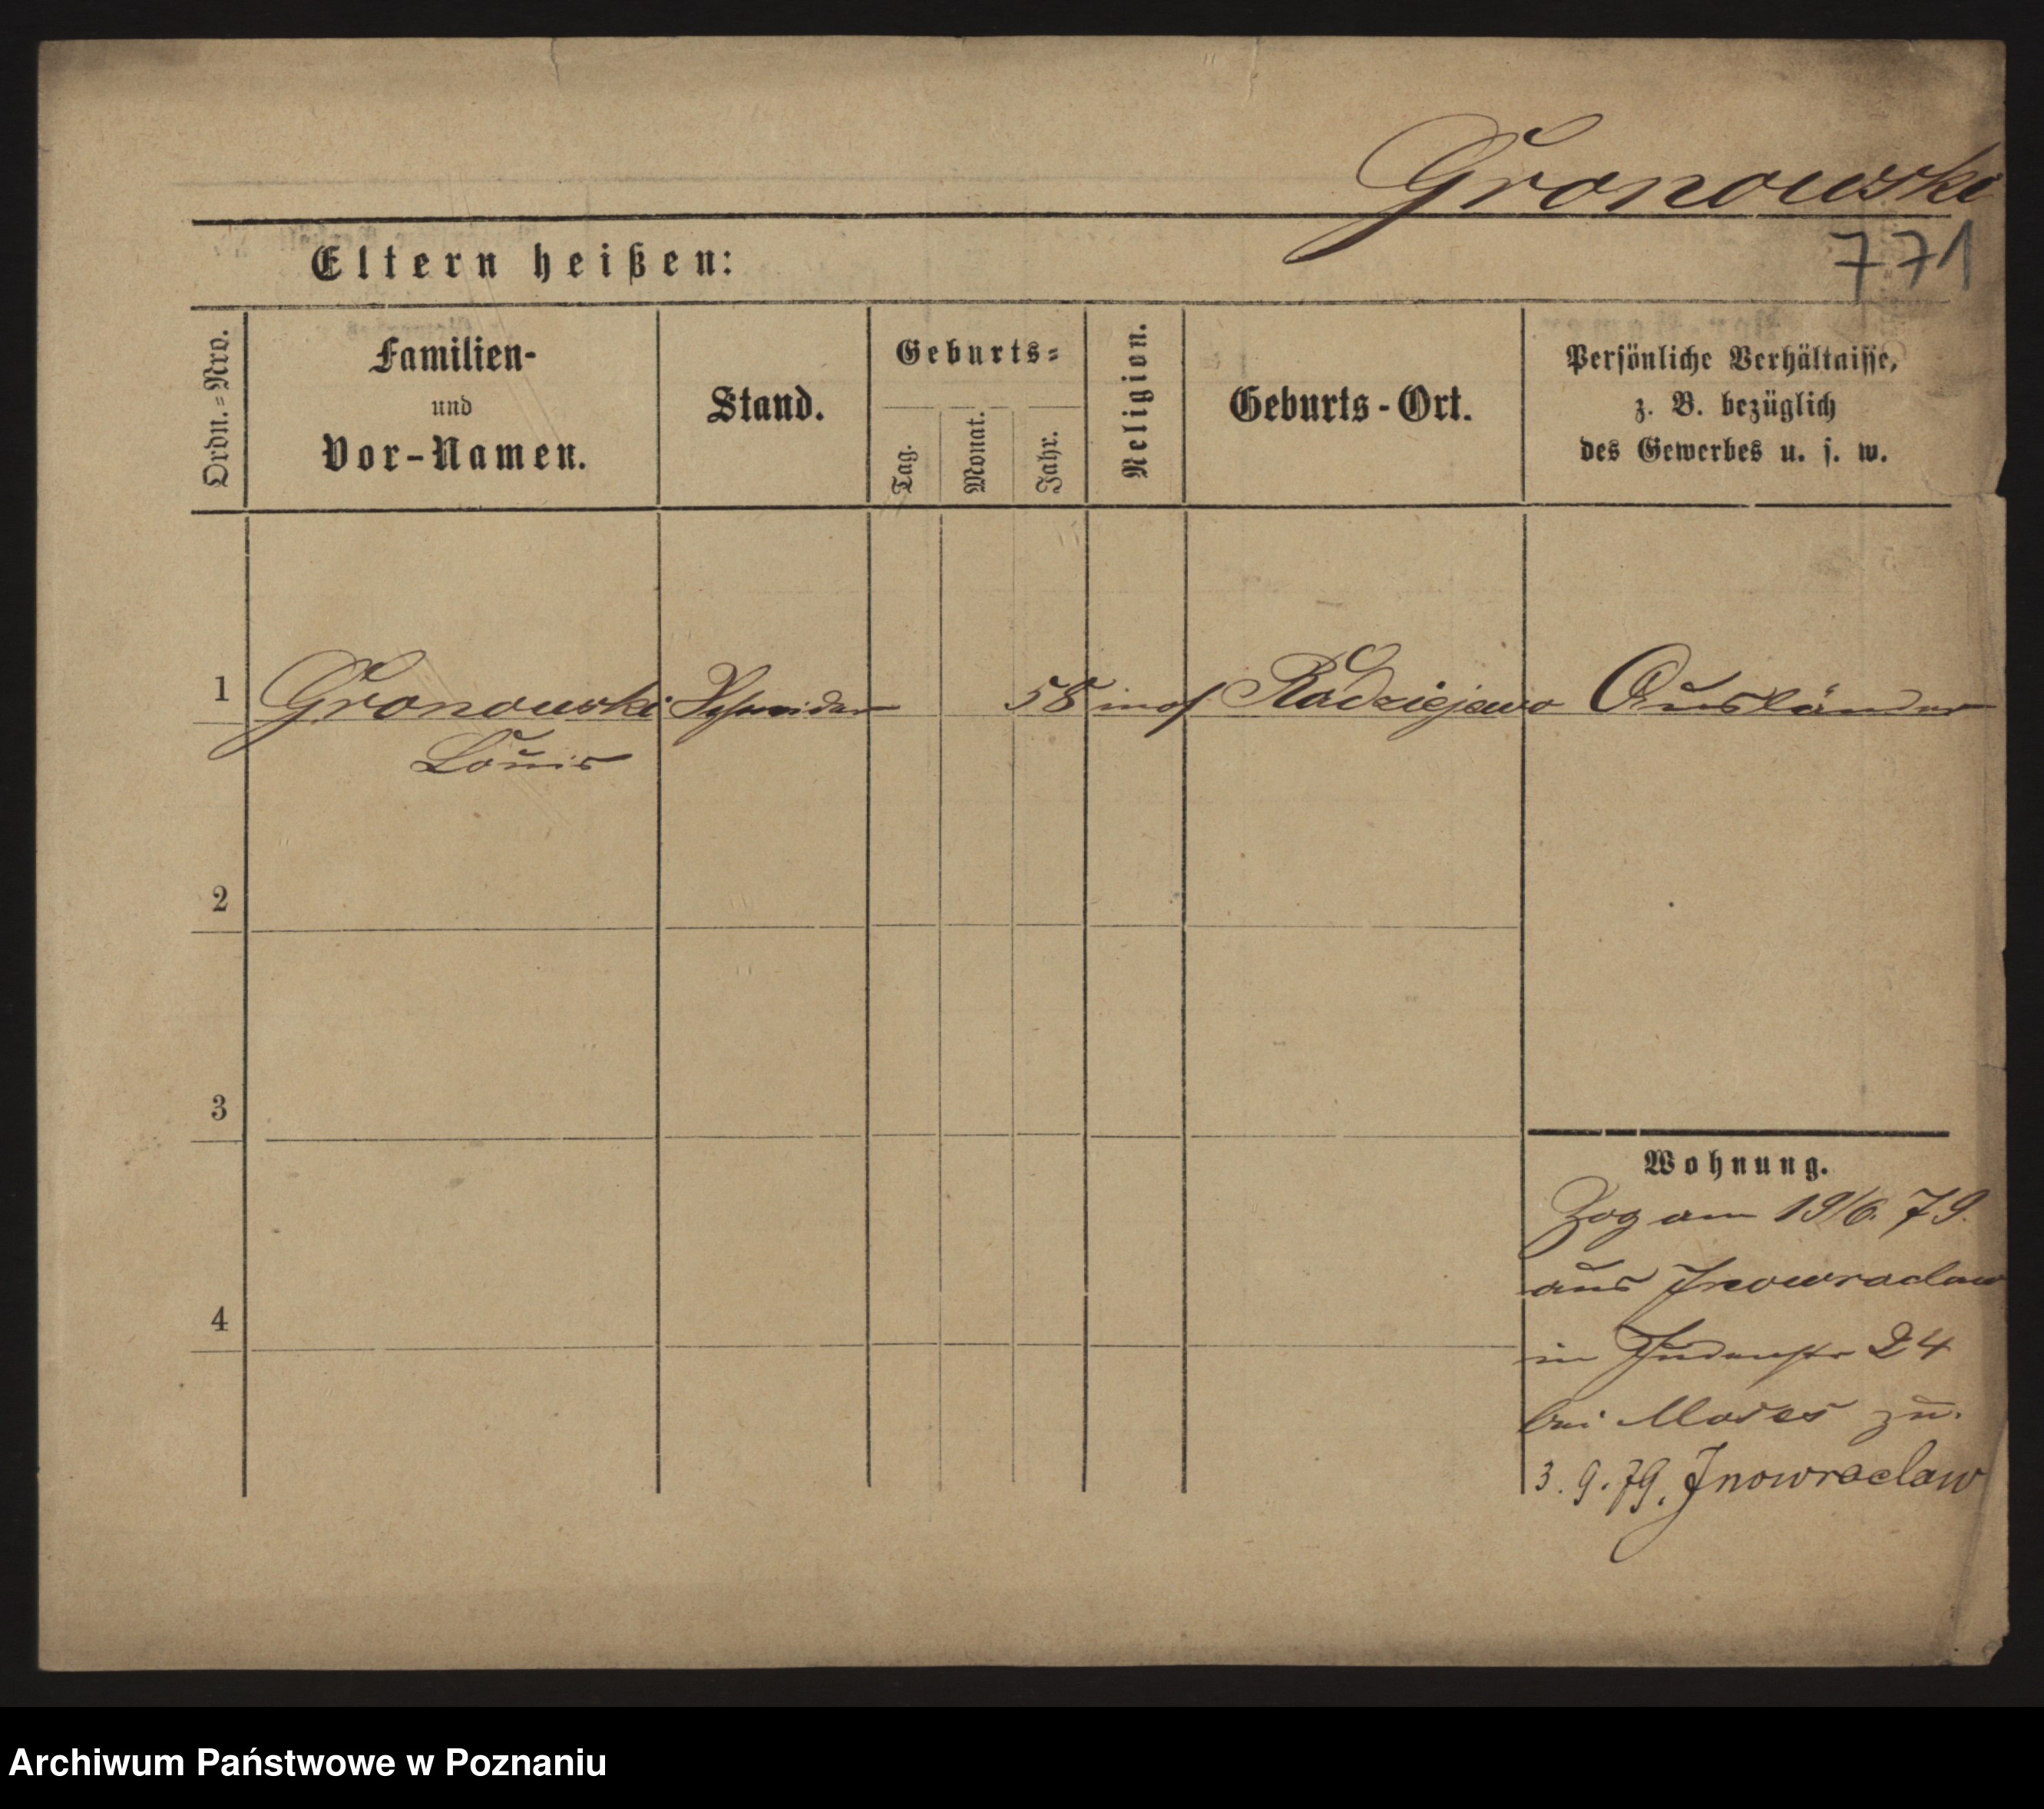 Gronowski
771
Eltern heißen:
Ordn.=Nro.
Familien-
und
Vor-Namen.
Stand.
Geburts=
Tag.
Monat.
Jahr.
Religion.
Geburts-Ort.
Persönliche Verhältnisse,
z. B. bezüglich
des Gewerbes u. s. w.
1 Gronowski Schneider 58 mos Radziejewo Ausländer
Louis
2
3
4
Wohnung.
Zog am 19/6. 79.
aus Inowraclaw
in Judenstr 24
bei Moses zu.
3. 9. 79. Inowraclaw
Archiwum Państwowe w Poznaniu